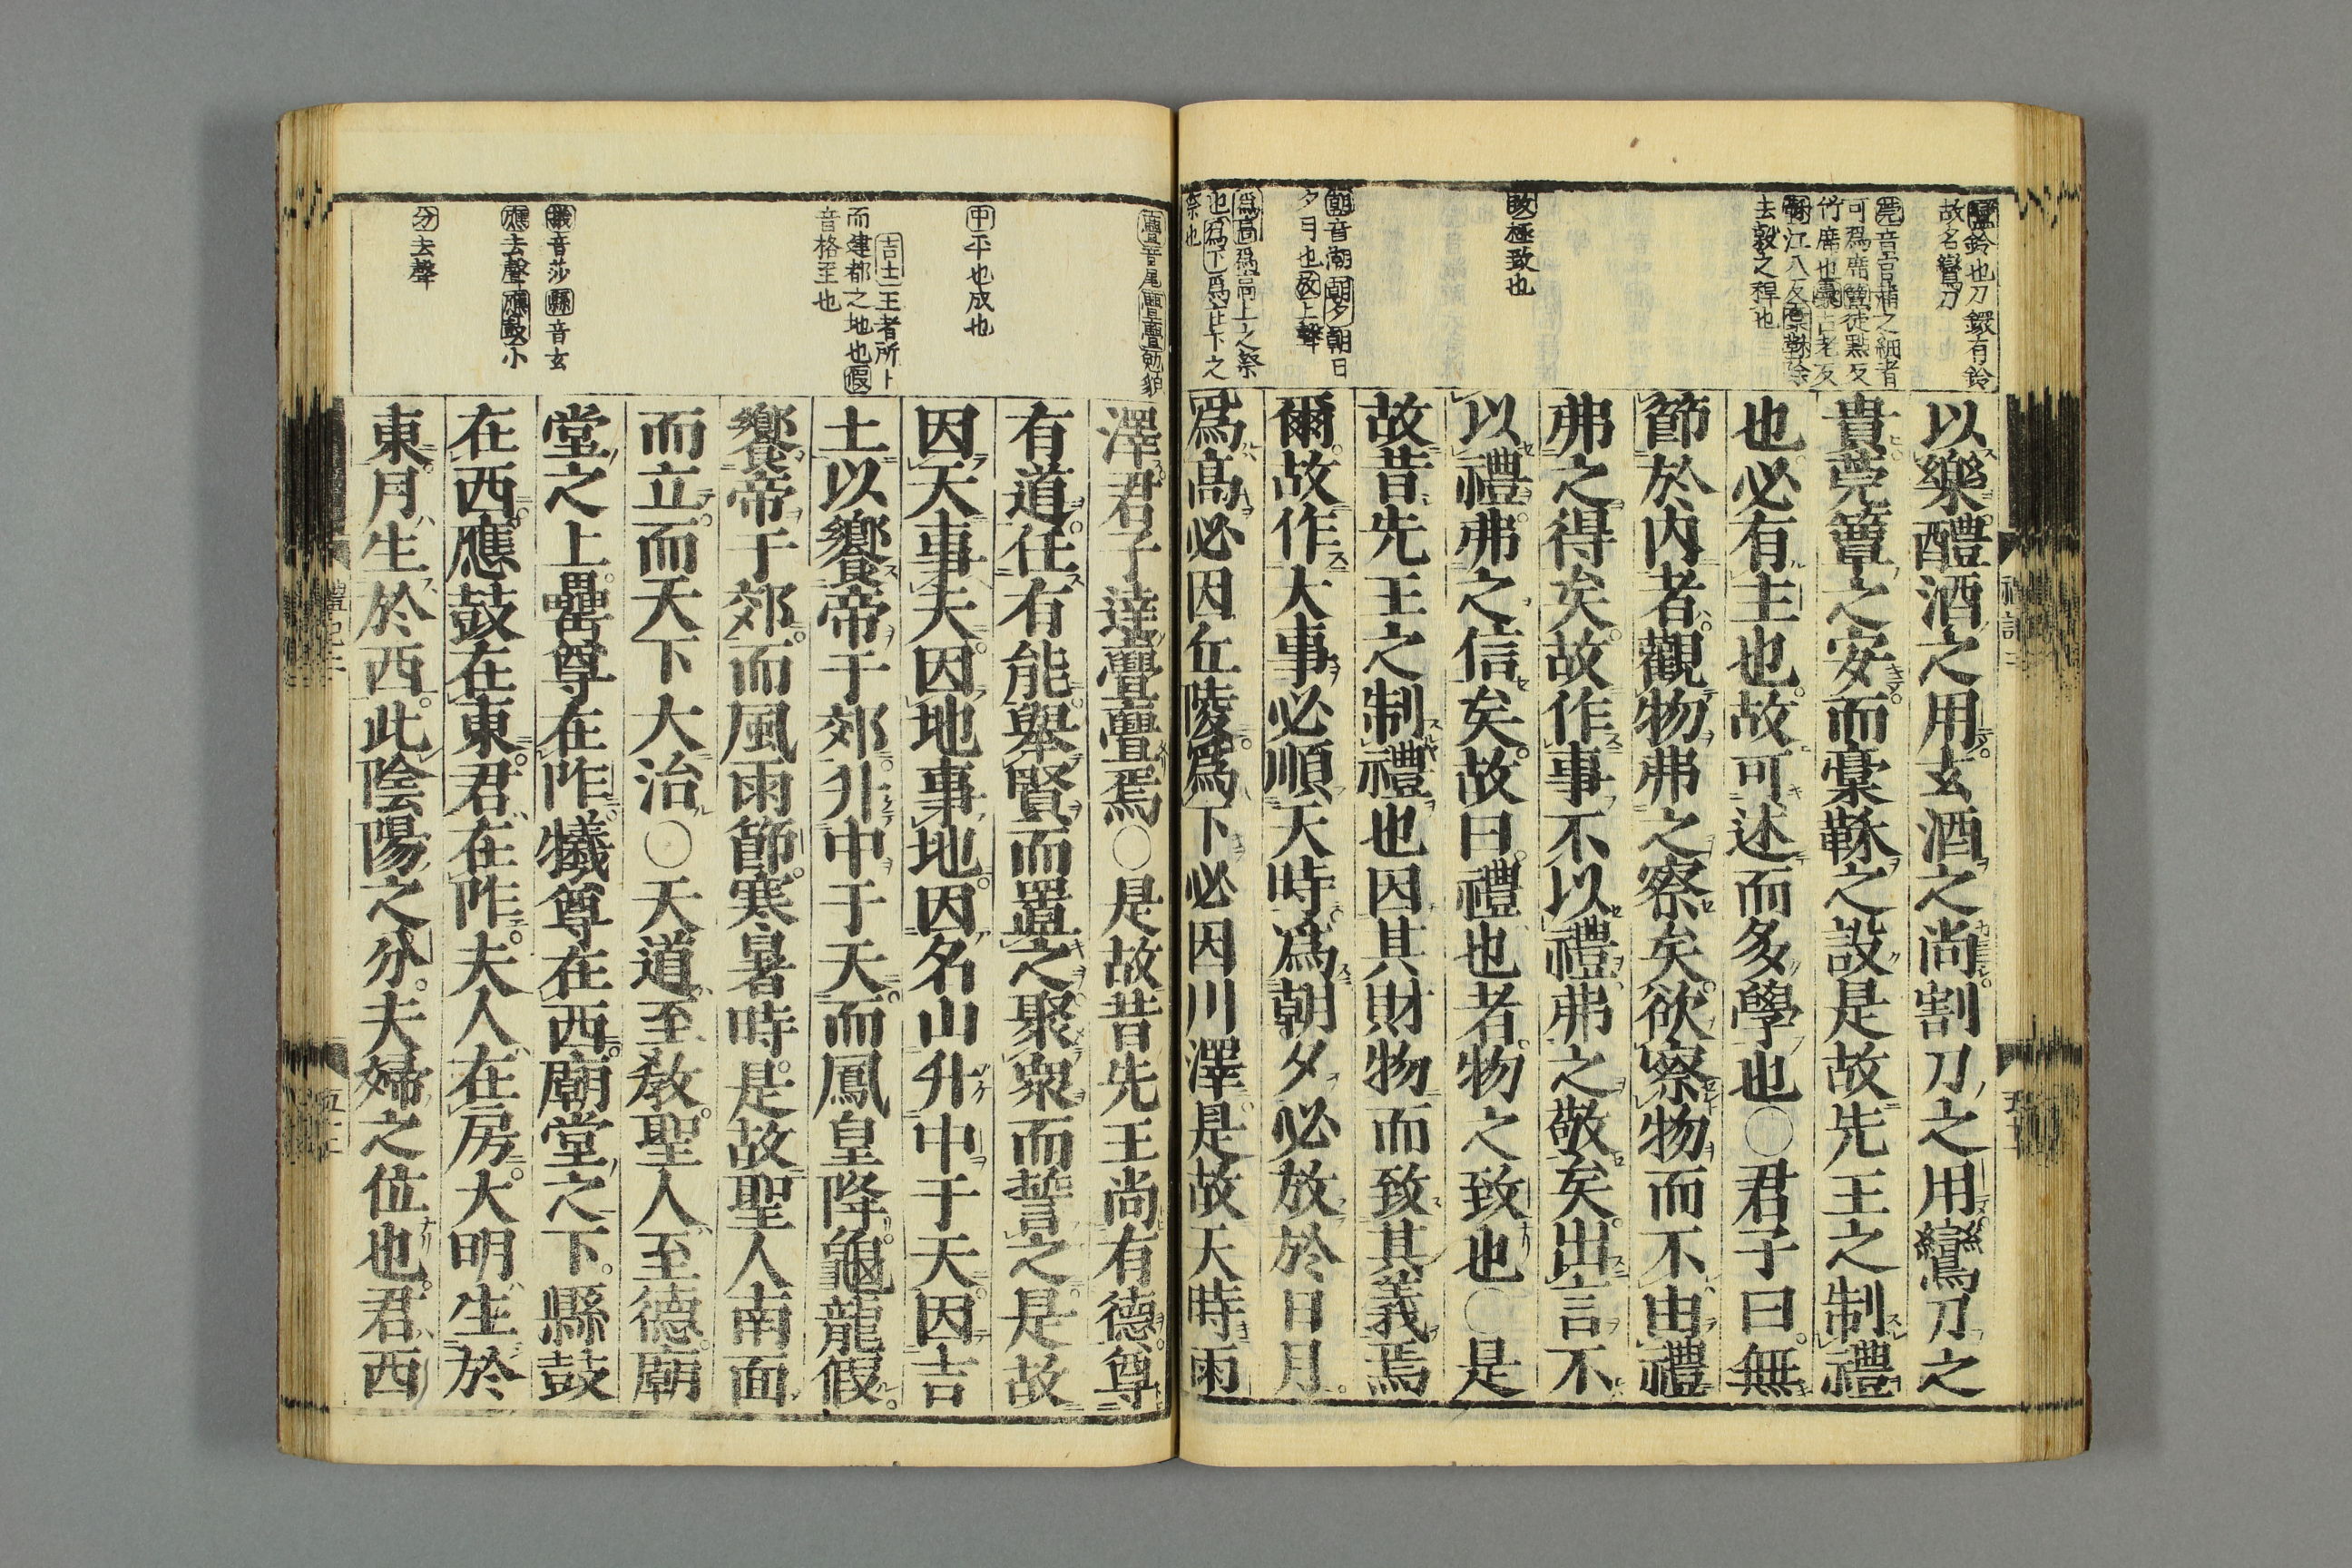 鸞鈴也刀鐶有鈴
故名鸞刀
莞音官蒲之細者
可爲席簟徒點反
竹席也稾古老反
鞂江八反稾鞂除
去穀之稈也
致極致也
朝音潮朝夕朝日
夕月也放上聲
爲高爲高上之祭
也爲下爲在下之
祭也
以樂醴酒之用玄酒之尚割刀之用鸞刀之
貴莞簟之安而稾鞂之設是故先王之制禮
也必有主也故可述而多學也○君子曰無
節於内者觀物弗之察矣欲察物而不由禮
弗之得矣故作事不以禮弗之敬矣出言不
以禮弗之信矣故曰禮也者物之致也○是
故昔先王之制禮也因其財物而致其義焉
爾故作大事必順天時爲朝夕必放於日月
爲高必因丘陵爲下必因川澤是故天時雨
禮記二
亹音尾亹亹勉貌
中平也成也
吉土王者所卜
而建都之地也假
音格至也
犧音莎縣音玄
應去聲應鼓小
分去聲
澤君子達亹亹焉○是故昔先王尚有德尊
有道任有能舉賢而置之聚衆而誓之是故
因天事天因地事地因名山升中于天因吉
土以饗帝于郊升中于天而鳳皇降龜龍假
饗帝于郊而風雨節寒暑時是故聖人南面
而立而天下大治○天道至敎聖人至德廟
堂之上罍尊在阼犧尊在西廟堂之下縣鼓
在西應鼓在東君在阼夫人在房大明生於
東月生於西此陰陽之分夫婦之位也君西
禮記二